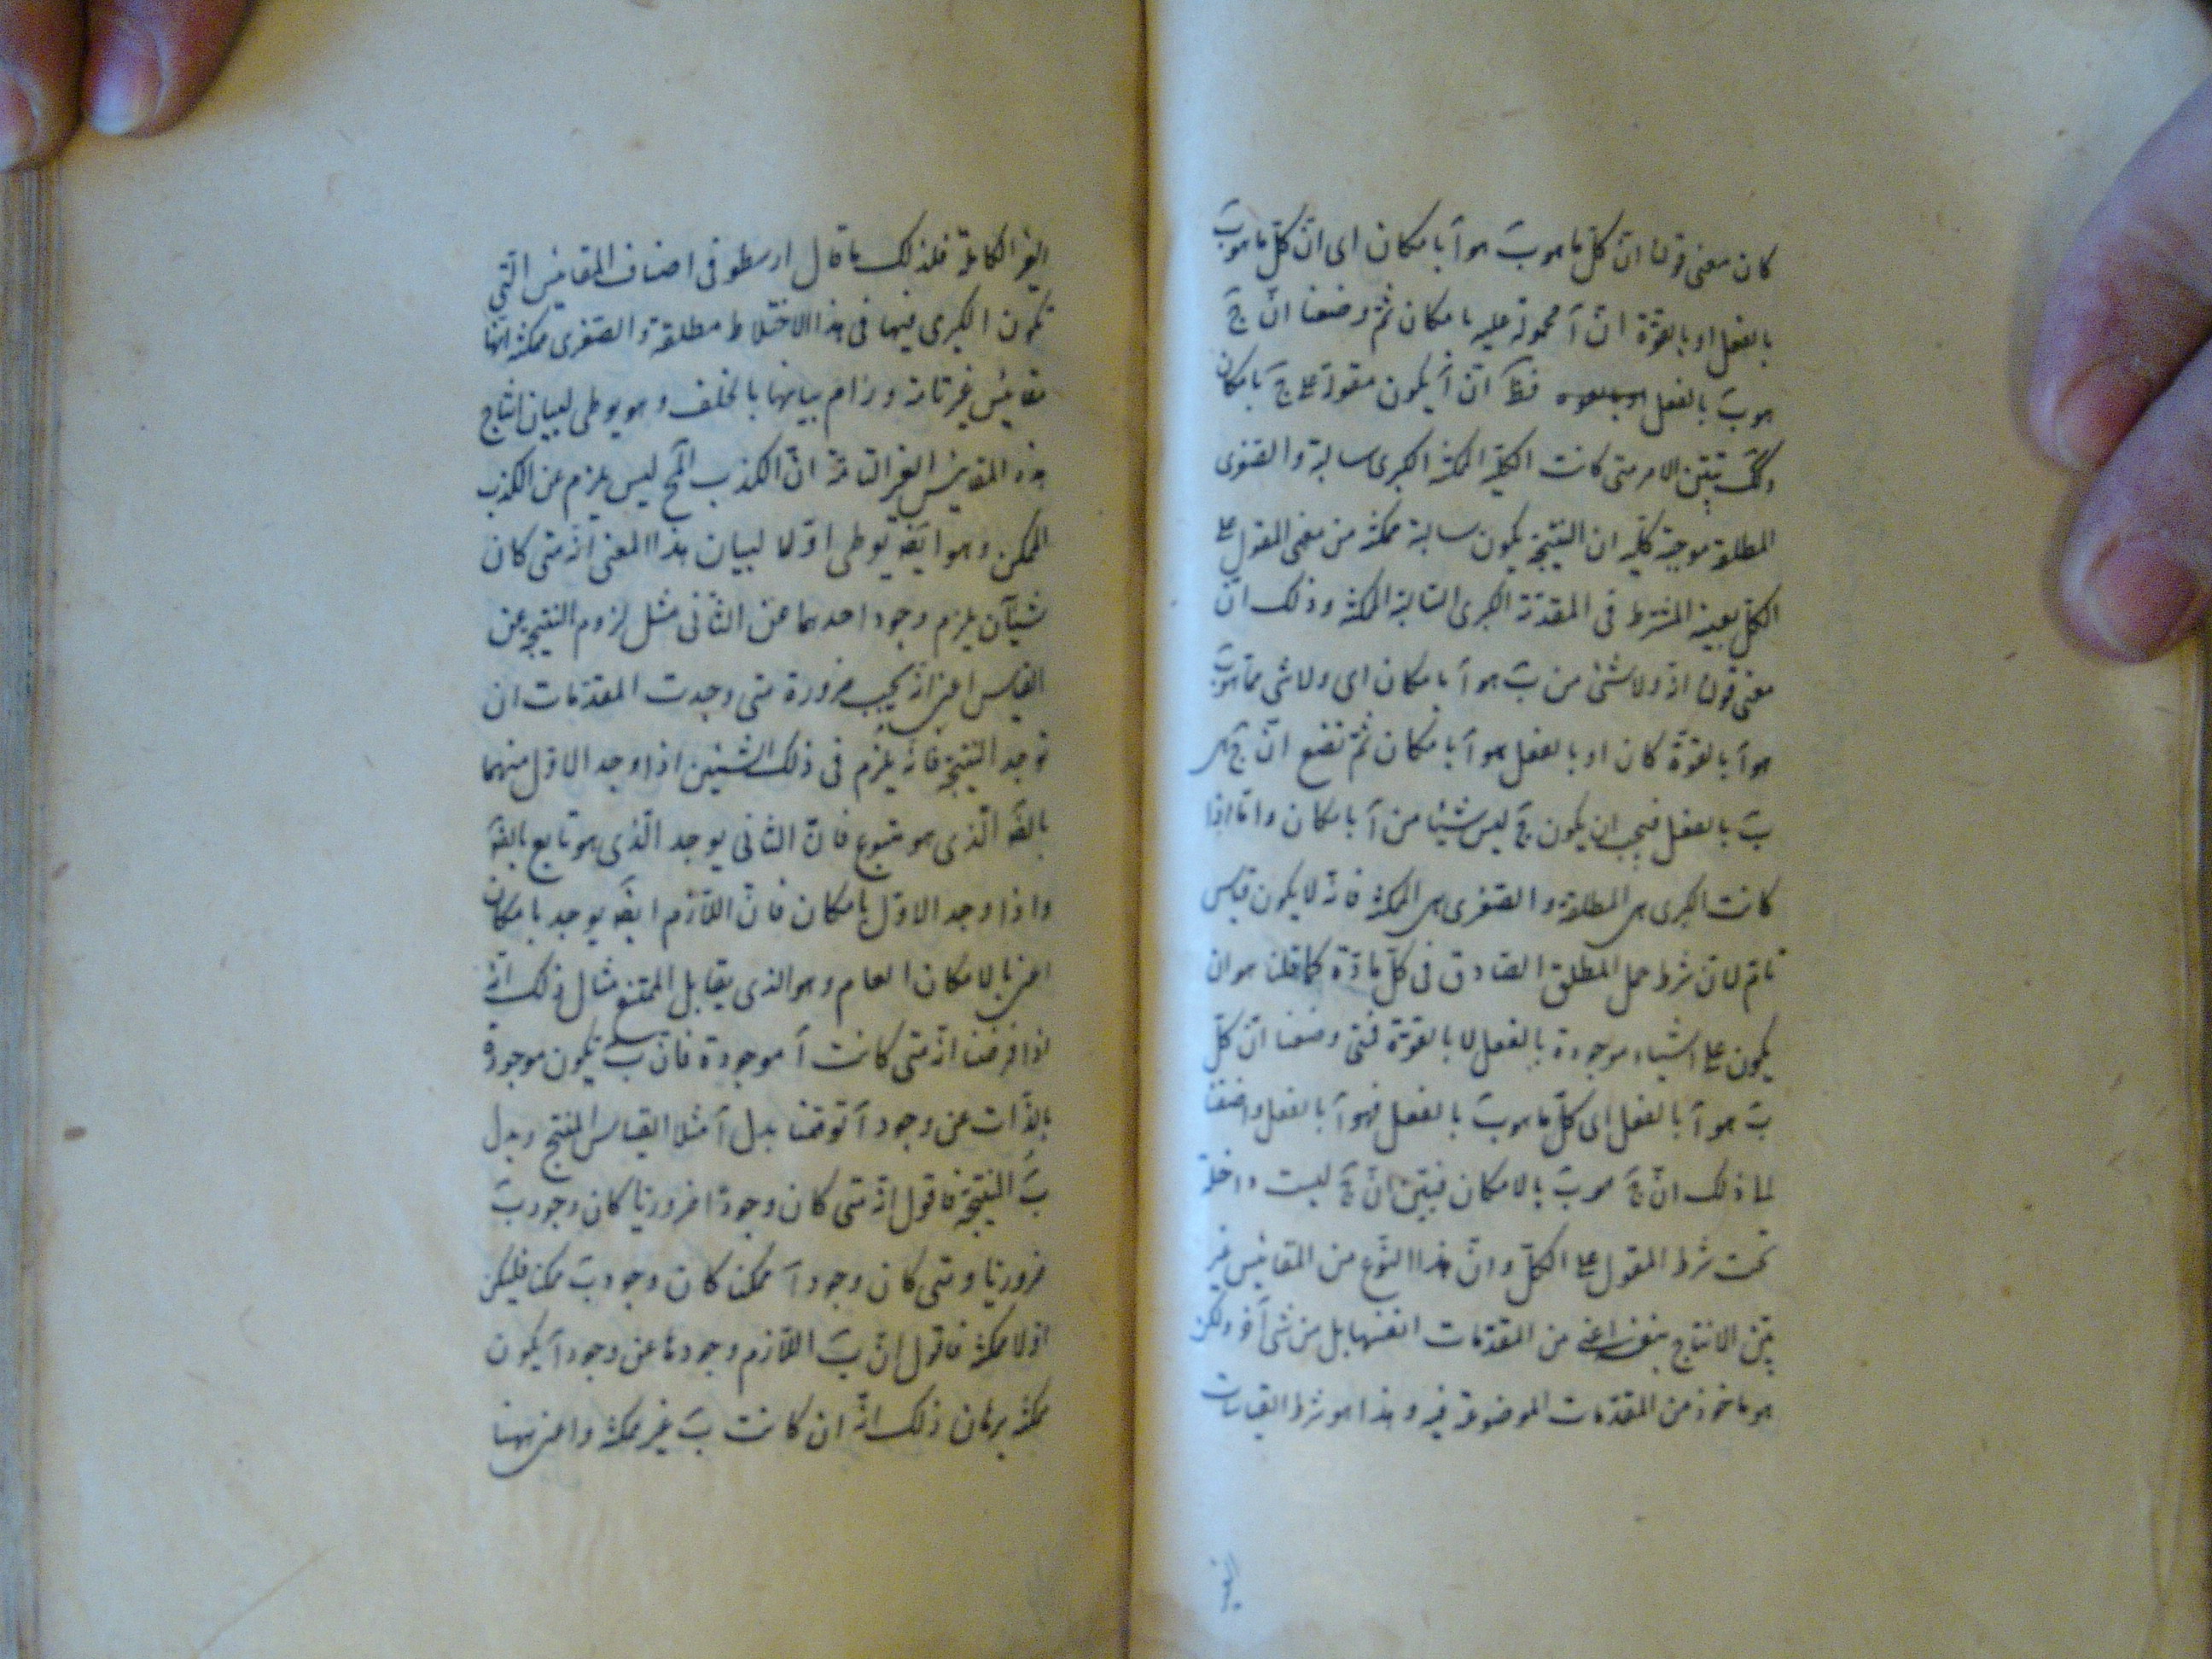 كان معنى قولنا ان كل ما هو بَ هو آ بامكان اى ان كل ما هو بَ
بالفعل او بالقوة ان آ محمولة عليه بامكان ثم وضعنا ان جَ
هو بَ بالفعل فظ ان آ يكون مقولة على جَ بامكان
وكك يتبين الامر متى كانت الكلية الممكنة الكبرى سالبة والصغرى
المطلقة موجبة كلية ان النتيجة يكون سالبة ممكنة من معنى المقول على
الكل بعينه المشترط فى المقدمة الكبرى السالبة الممكنة وذلك ان
معنى قولنا انه ولا شئ من بَ هو آ بامكان اى ولا شى مما هو بَ
هو آ بالقوة كان او بالفعل هو آ بامكان ثم نضع ان جَ هى
بَ بالفعل فيجب ان يكون جَ ليس شيئا من آ بامكان واما اذا
كانت الكبرى هى المطلقة والصغرى هى الممكنة فانه لا يكون قياس
تام لان شرط حمل المطلق الصادق فى كل مادة كما قلنا هو ان
يكون على اشياء موجودة بالفعل لا بالقوة فمتى وضعنا ان كل
بَ هو آ بالفعل اى كل ما هو بَ بالفعل فهو آ بالفعل واضفنا
لما ذلك ان جَ هو بَ بالامكان فبين ان جَ ليست داخلة
تحت شرط المقول على الكل وان هذا النوع من المقائيس غير
بين الانتاج بنفسه اعنى من المقدمات انفسها بل من شى آخر ولكن
هو ماخوذ من المقدمات الموضوعة فيه وهذا هو شرط القياسات
الغير
الغير الكاملة فلذلك ما قال ارسطو فى اصناف المقائيس التى
تكون الكبرى فيها فى هذا الاختلاط مطلقة والصغرى ممكنة انها
مقائيس غير تامة ورام بيانها بالخلف وهو يوطى لبيان انتاج
هذه المقائيس الغير التامة ان الكذب المح ليس يلزم عن الكذب
الممكن وهو ايضَ يوطى اولا لبيان هذا المعنى انه متى كان
شيئآن يلزم وجود احدهما عن الثانى مثل لزوم النتيجة عن
القياس اعنى انه يجب ضرورة متى وجدت المقدمات ان
توجد النتيجة فانه يلزم فى ذلك الشيئين اذا وجد الاول منهما
بالقوَ الذى هو متبوع فان الثانى يوجد الذى هو تابع بالقوَ
واذا وجد الاول بامكان فان اللازم ايضَ يوجد بامكان
اعنى بالامكان العام وهو الذى يقابل الممتنع مثال ذلك انه
اذا فرضنا انه متى كانت آ موجودة فان بَ تكون موجودة
بالذات عن وجود آ توقمنا بدل آ مثلا القياس المنتج وبدل
بَ النتيجة فاقول انه متى كان وجود آ ضروريا كان وجود بَ
ضروريا ومتى كان وجود آ ممكن كان وجود بَ ممكنا فليكن
اولا ممكنة فاقول ان بَ اللازم وجودها عن وجود آ يكون
ممكنة برهان ذلك انه ان كانت بَ غير ممكنة واعنى ههنا